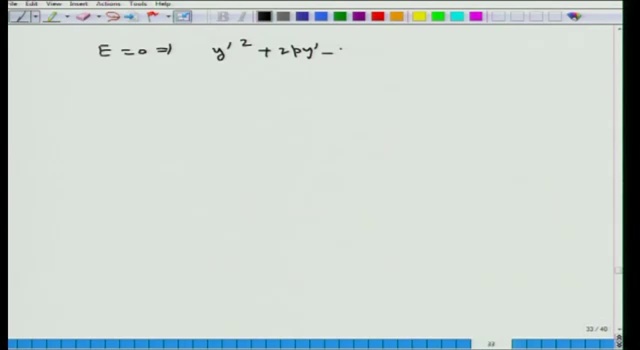 File Edit View Insert Actions Tools Help
E = 0 ⇒ y'² + 2py' -
33 / 40
33